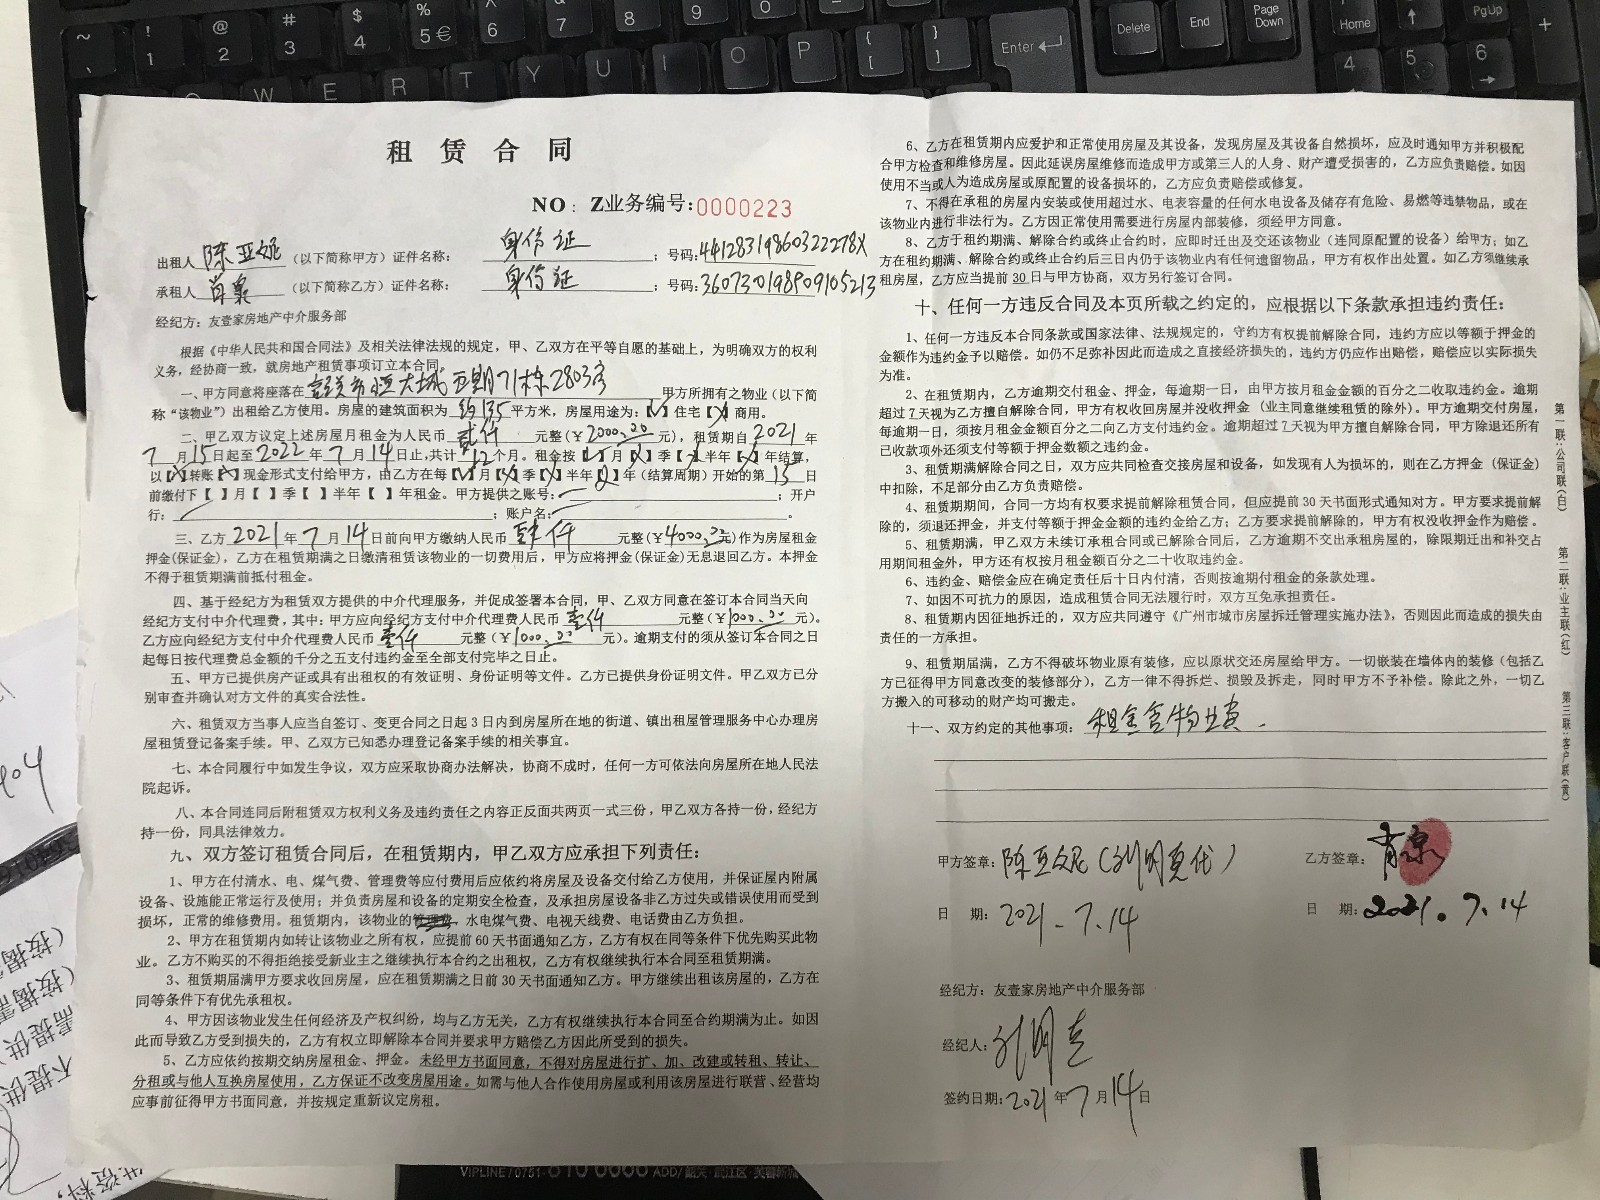 租赁合同
NO：Z业务编号:0000223
出租人 陈亚妮 （以下简称甲方）证件名称： 身份证 ；号码:44128319860322278X
承租人 肖 （以下简称乙方）证件名称： 身份证 ；号码:
经纪方：友壹家房地产中介服务部
根据《中华人民共和国合同法》及相关法律法规的规定，甲、乙双方在平等自愿的基础上，为明确双方的权利
义务，经协商一致，就房地产租赁事项订立本合同。
一、甲方同意将座落在 韶关市恒大城五期71栋2803房 甲方所拥有之物业（以下简
称“该物业”）出租给乙方使用。房屋的建筑面积为 约135 平方米，房屋用途为：【√】住宅【×】商用。
二、甲乙双方议定上述房屋月租金为人民币 贰仟 元整（￥2000.00元），租赁期自2021年
7月15日起至2022年7月14日止,共计12个月。租金按【√】月【×】季【×】半年【×】年结算，
以【×】转账【×】现金形式支付给甲方，由乙方在每【√】月【×】季【×】半年【×】年（结算周期）开始的第15日
前缴付下【 】月【 】季【 】半年【 】年租金。甲方提供之账号： ；开户
行： ；账户名： 。
三、乙方2021年7月14日前向甲方缴纳人民币 肆仟 元整（￥4000.00元）作为房屋租金
押金(保证金)，乙方在租赁期满之日缴清租赁该物业的一切费用后，甲方应将押金(保证金)无息退回乙方。本押金
不得于租赁期满前抵付租金。
四、基于经纪方为租赁双方提供的中介代理服务，并促成签署本合同，甲、乙双方同意在签订本合同当天向
经纪方支付中介代理费，其中：甲方应向经纪方支付中介代理费人民币 壹仟 元整（￥1000.00元）。
乙方应向经纪方支付中介代理费人民币 壹仟 元整（￥1000.00元）。逾期支付的须从签订本合同之日
起每日按代理费总金额的千分之五支付违约金至全部支付完毕之日止。
五、甲方已提供房产证或具有出租权的有效证明、身份证明等文件。乙方已提供身份证明文件。甲乙双方已分
别审查并确认对方文件的真实合法性。
六、租赁双方当事人应当自签订、变更合同之日起3日内到房屋所在地的街道、镇出租屋管理服务中心办理房
屋租赁登记备案手续。甲、乙双方已知悉办理登记备案手续的相关事宜。
七、本合同履行中如发生争议，双方应采取协商办法解决，协商不成时，任何一方可依法向房屋所在地人民法
院起诉。
八、本合同连同后附租赁双方权利义务及违约责任之内容正反面共两页一式三份，甲乙双方各持一份，经纪方
持一份，同具法律效力。
九、双方签订租赁合同后，在租赁期内，甲乙双方应承担下列责任：
1、甲方在付清水、电、煤气费、管理费等应付费用后应依约将房屋及设备交付给乙方使用，并保证屋内附属
设备、设施能正常运行及使用；并负责房屋和设备的定期安全检查，及承担房屋设备非乙方过失或错误使用而受到
损坏，正常的维修费用。租赁期内，该物业的管理费、水电煤气费、电视天线费、电话费由乙方负担。
2、甲方在租赁期内如转让该物业之所有权，应提前60天书面通知乙方，乙方有权在同等条件下优先购买此物
业。乙方不购买的不得拒绝接受新业主之继续执行本合约之出租权，乙方有权继续执行本合同至租赁期满。
3、租赁期届满甲方要求收回房屋，应在租赁期满之日前30天书面通知乙方。甲方继续出租该房屋的，乙方在
同等条件下有优先承租权。
4、甲方因该物业发生任何经济及产权纠纷，均与乙方无关，乙方有权继续执行本合同至合约期满为止。如因
此而导致乙方受到损失的，乙方有权立即解除本合同并要求甲方赔偿乙方因此所受到的损失。
5、乙方应依约按期交纳房屋租金、押金。未经甲方书面同意，不得对房屋进行扩、加、改建或转租、转让、
分租或与他人互换房屋使用，乙方保证不改变房屋用途。如需与他人合作使用房屋或利用该房屋进行联营、经营均
应事前征得甲方书面同意，并按规定重新议定房租。
6、乙方在租赁期内应爱护和正常使用房屋及其设备，发现房屋及其设备自然损坏，应及时通知甲方并积极配
合甲方检查和维修房屋。因此延误房屋维修而造成甲方或第三人的人身、财产遭受损害的，乙方应负责赔偿。如因
使用不当或人为造成房屋或原配置的设备损坏的，乙方应负责赔偿或修复。
7、不得在承租的房屋内安装或使用超过水、电表容量的任何水电设备及储存有危险、易燃等违禁物品，或在
该物业内进行非法行为。乙方因正常使用需要进行房屋内部装修，须经甲方同意。
8、乙方于租约期满、解除合约或终止合约时，应即时迁出及交还该物业（连同原配置的设备）给甲方；如乙
方在租约期满、解除合约或终止合约后三日内仍于该物业内有任何遗留物品，甲方有权作出处置。如乙方须继续承
租房屋，乙方应当提前30日与甲方协商，双方另行签订合同。
十、任何一方违反合同及本页所载之约定的，应根据以下条款承担违约责任：
1、任何一方违反本合同条款或国家法律、法规规定的，守约方有权提前解除合同，违约方应以等额于押金的
金额作为违约金予以赔偿。如仍不足弥补因此而造成之直接经济损失的，违约方仍应作出赔偿，赔偿应以实际损失
为准。
2、在租赁期内，乙方逾期交付租金、押金，每逾期一日，由甲方按月租金金额的百分之二收取违约金。逾期
超过7天视为乙方擅自解除合同，甲方有权收回房屋并没收押金（业主同意继续租赁的除外）。甲方逾期交付房屋，
每逾期一日，须按月租金金额百分之二向乙方支付违约金。逾期超过7天视为甲方擅自解除合同，甲方除退还所有
已收款项外还须支付等额于押金数额之违约金。
3、租赁期满解除合同之日，双方应共同检查交接房屋和设备，如发现有人为损坏的，则在乙方押金（保证金）
中扣除，不足部分由乙方负责赔偿。
4、租赁期期间，合同一方均有权要求提前解除租赁合同，但应提前30天书面形式通知对方。甲方要求提前解
除的，须退还押金，并支付等额于押金金额的违约金给乙方；乙方要求提前解除的，甲方有权没收押金作为赔偿。
5、租赁期满，甲乙双方未续订承租合同或已解除合同后，乙方逾期不交出承租房屋的，除限期迁出和补交占
用期间租金外，甲方还有权按月租金额百分之二十收取违约金。
6、违约金、赔偿金应在确定责任后十日内付清，否则按逾期付租金的条款处理。
7、如因不可抗力的原因，造成租赁合同无法履行时，双方互免承担责任。
8、租赁期内因征地拆迁的，双方应共同遵守《广州市城市房屋拆迁管理实施办法》，否则因此而造成的损失由
责任的一方承担。
9、租赁期届满，乙方不得破坏物业原有装修，应以原状交还房屋给甲方。一切嵌装在墙体内的装修（包括乙
方已征得甲方同意改变的装修部分），乙方一律不得拆烂、损毁及拆走，同时甲方不予补偿。除此之外，一切乙
方搬入的可移动的财产均可搬走。
十一、双方约定的其他事项：租金含物业费.
甲方签章：陈亚妮（刘明克代）
乙方签章：肖
日 期：2021.7.14
日 期：2021.7.14
经纪方：友壹家房地产中介服务部
经纪人：刘明克
签约日期：2021年7月14日
第一联：公司联（白） 第二联：业主联（红） 第三联：客户联（黄）
VIPLINE/0751-810 6666 ADD/韶关·武江区·芙蓉新城